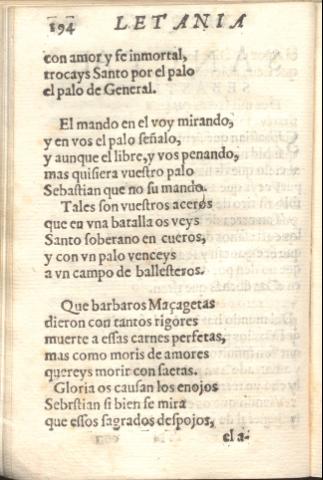 194 LETANIA
con amor y fe inmortal,
trocays Santo por el palo
el palo de General.
El mando en el voy mirando,
y en vos el palo señalo,
y aunque el libre, y vos penando,
mas quisiera vuestro palo
Sebastian que no su mando.
Tales son vuestros aceros
que en vna batalla os veys
Santo soberano en cueros,
y con vn palo venceys
a vn campo de ballesteros.
Que barbaros Maçagetas
dieron con tantos rigores
muerte a essas carnes perfetas,
mas como moris de amores
quereys morir con saetas.
Gloria os causan los enojos
Sebrstian si bien se mira
que essos sagrados despojos,
el a-